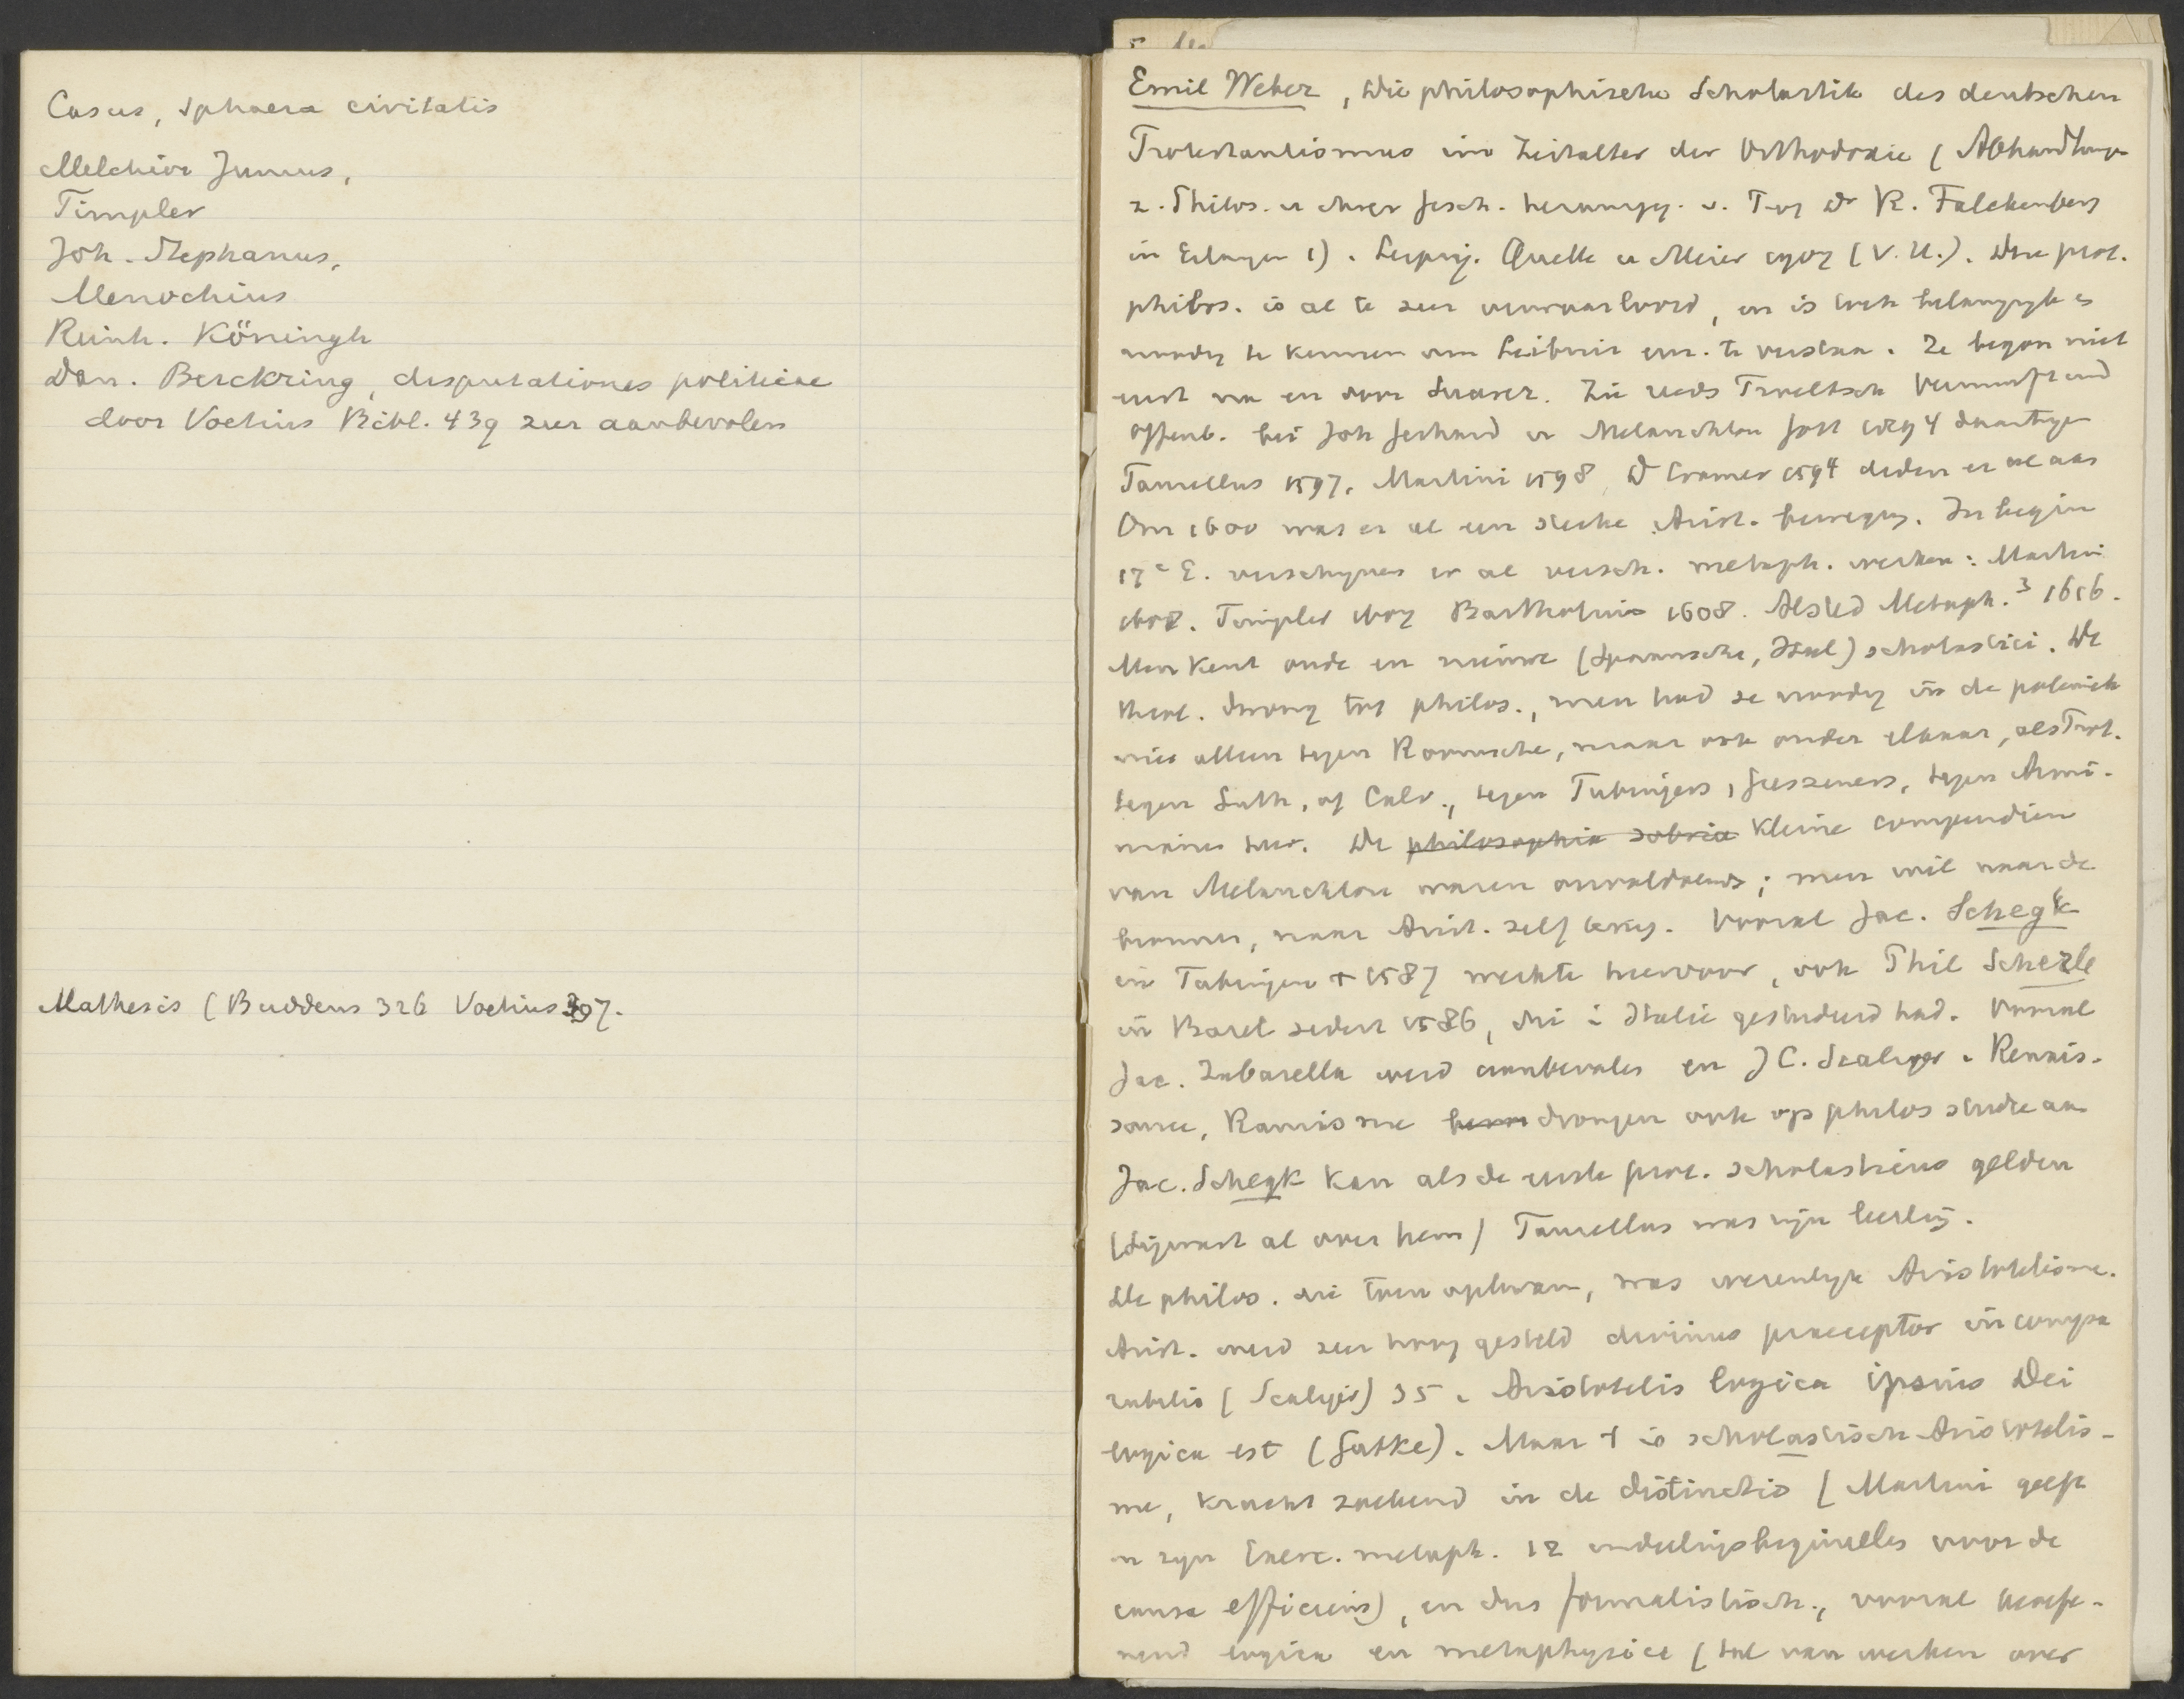 Casus, sphaera civitatis
Melchior Junius,
Timpler
Joh. Stephanus,
Menochius
Reinh. Köningh
Dan. Berckring, disputationes politicae
door Voetius Bibl. 439 zeer aanbevolen
Mathesis (Buddeus 326 Voetius 307.
Emil Weber, Die philosophische Scholastik des deutschen
Protestantismus im Zeitalter der Orthodoxie (Abhandlungen
z. Philos. u ihrer Gesch. herausgg. v. Prof Dr R. Falckenberg
in Erlangen 1). Leipzig. Quelle u Meier 1907 (V.U.). Die prot.
philos. is al te zeer verwaarloosd, en is toch belangrijk en
noodig te kennen om Leibniz enz. te verstaan. Ze began niet
eerst na en door Suarez. Zie reeds Troeltsch Vernunft und
Offenb. bei Joh Gerhard u Melanchton Gött 1891 4 daartegen
Taurellus 1597. Martini 1598, D Cramer 1594 deden er al aan
Om 1600 was er al een sterke Arist. beweging. In begin
17e E. verschijnen er al versch. metaph. werken: Martini
Timpler Bartholinus 1608. Alsted Metaph.3 1616.
Men kent oude en nieuwe (Spaansche, Ital) scholastici. De
theol. drong tot philos., men had ze noodig in de polemiek
niet alleen tegen Roomsche, maar ook onder elkaar, als Prot.
tegen Luth. of Calv., tegen Tubingers, Gieszeners, tegen Armi-
nianen enz. De philosophia sobria kleine compendien
van Melanchton waren onvoldoende; men wil naar de
bronnen, naar Arist. zelf terug. Vooral Jac. Schegk
in Tubingen + 1587 werkte hiervoor, ook Phil Scherle
in Bazel sedert 1586, die i Italie gestudeerd had. Vooral
Jac. Zabarella werd aanbevolen en J C. Scaliger. Renais-
sance, Ramisme drongen ook op philos studie aan
Jac. Schegk kan als de eerste prot. scholasticus gelden
(Sigwart al over hem) Taurellus was zijn leerling.
De philos. die toen opkwam, was wezenlijk Aristotelisme.
Arist. werd zeer hoog gesteld divinus praeceptor incompa
rabilis (Scaliger) 35. Aristotelis logica ipsius Dei
logica est (Gutke). Maar t is scholastisch Aristotelis-
me, kracht zoekend in de distinctio (Martini geeft
in zijn Exerc. metaph. 12 indeelingsbeginselen voor de
causa efficiens), en dus formalistisch, vooral beoefe-
nend logica en metaphysica (tal van werken over